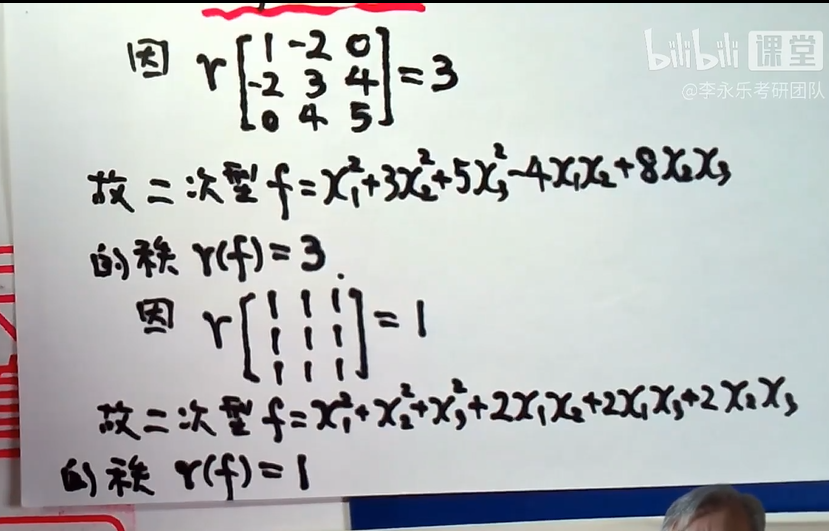 bilibili 课堂
@李永乐考研团队
因 r[1 -2 0; -2 3 4; 0 4 5] = 3
故二次型 f=x₁²+3x₂²+5x₃²-4x₁x₂+8x₂x₃
的秩 r(f)=3.
因 r[1 1 1; 1 1 1; 1 1 1] = 1
故二次型 f=x₁²+x₂²+x₃²+2x₁x₂+2x₁x₃+2x₂x₃
的秩 r(f)=1